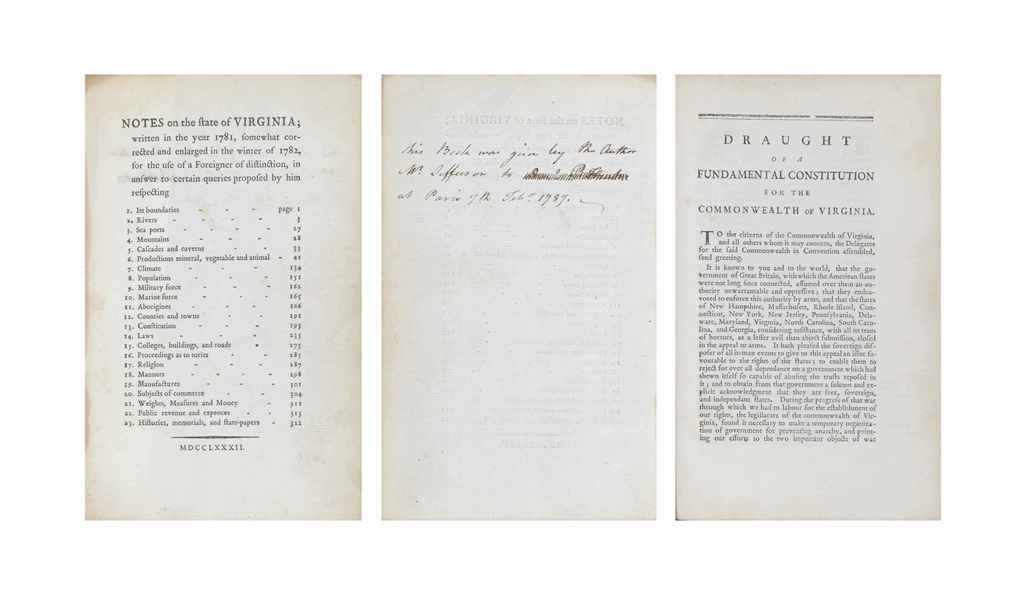 NOTES on the ſtate of VIRGINIA;
written in the year 1781, ſomewhat cor-
rected and enlarged in the winter of 1782,
for the uſe of a Foreigner of diſtinction, in
anſwer to certain queries propoſed by him
reſpecting
1. Its boundaries - - - page 1
2. Rivers - - - - 3
3. Sea ports - - - - 27
4. Mountains - - - 28
5. Caſcades and caverns - - 33
6. Productions mineral, vegetable and animal - 41
7. Climate - - - - 134
8. Population - - - 151
9. Military force - - - 162
10. Marine force - - - 165
11. Aborigines - - - 166
12. Counties and towns - - 191
13. Conſtitution - - - 193
14. Laws - - - - 235
15. Colleges, buildings, and roads - 275
16. Proceedings as to tories - - 285
17. Religion - - - - 287
18. Manners - - - - 298
19. Manufactures - - - 301
20. Subjects of commerce - - 304
21. Weights, Meaſures and Money - 311
22. Public revenue and expences - - 313
23. Hiſtories, memorials, and ſtate-papers - 322
MDCCLXXXII.
this Book was given by the Author
Mr. Jefferson to
at Paris 7th Feb. 1787.
DRAUGHT
OF A
FUNDAMENTAL CONSTITUTION
FOR THE
COMMONWEALTH OF VIRGINIA.
TO the citizens of the Commonwealth of Virginia,
and all others whom it may concern, the Delegates
for the ſaid Commonwealth in Convention aſſembled,
ſend greeting.
It is known to you and to the world, that the go-
vernment of Great Britain, with which the American ſtates
were not long ſince connected, aſſumed over them an au-
thority unwarrantable and oppreſſive; that they endea-
voured to enforce this authority by arms, and that the ſtates
of New Hampſhire, Maſſachuſets, Rhode Iſland, Con-
necticut, New York, New Jerſey, Pennſylvania, Dela-
ware, Maryland, Virginia, North Carolina, South Caro-
lina, and Georgia, conſidering reſiſtance, with all its train
of horrors, as a leſſer evil than abject ſubmiſſion, cloſed
in the appeal to arms. It hath pleaſed the ſovereign diſ-
poſer of all human events to give to this appeal an iſſue fa-
vourable to the rights of the ſtates; to enable them to
reject for ever all dependance on a government which had
ſhewn itſelf ſo capable of abuſing the truſts repoſed in
it; and to obtain from that government a ſolemn and ex-
plicit acknowledgment that they are free, ſovereign,
and independant ſtates. During the progreſs of that war
through which we had to labour for the eſtabliſhment of
our rights, the legiſlature of the commonwealth of Vir-
ginia, found it neceſſary to make a temporary organiza-
tion of government for preventing anarchy, and point-
ing our efforts to the two important objects of war